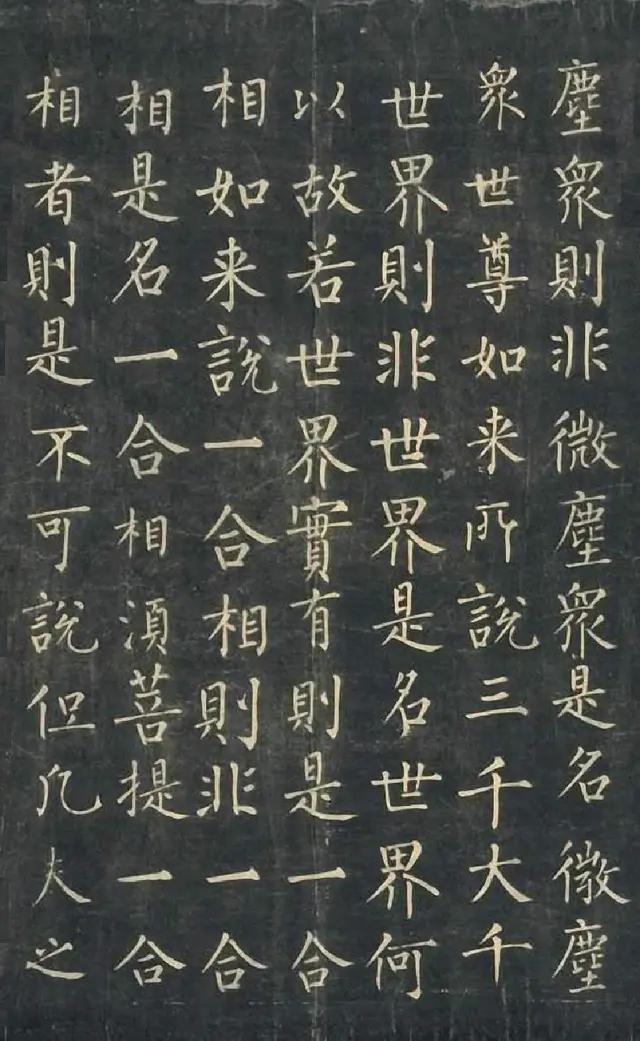 塵衆則非微塵衆是名微塵
衆世尊如来所說三千大千
世界則非世界是名世界何
以故若世界實有則是一合
相如来說一合相則非一合
相是名一合相須菩提一合
相者則是不可說但凡夫之